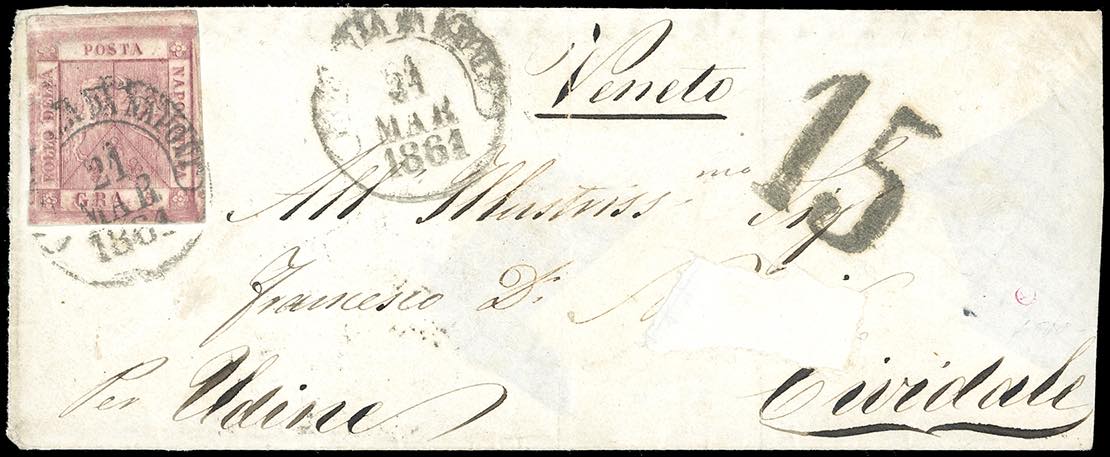 POSTA
BOLLO DELLA
NAPOL
GRA
DI NAPOLI
21
MAR
1861
21
MAR
1861
Veneto
15
All Illustriss mo Sig
Francesco Dr
Per Udine
Cividale